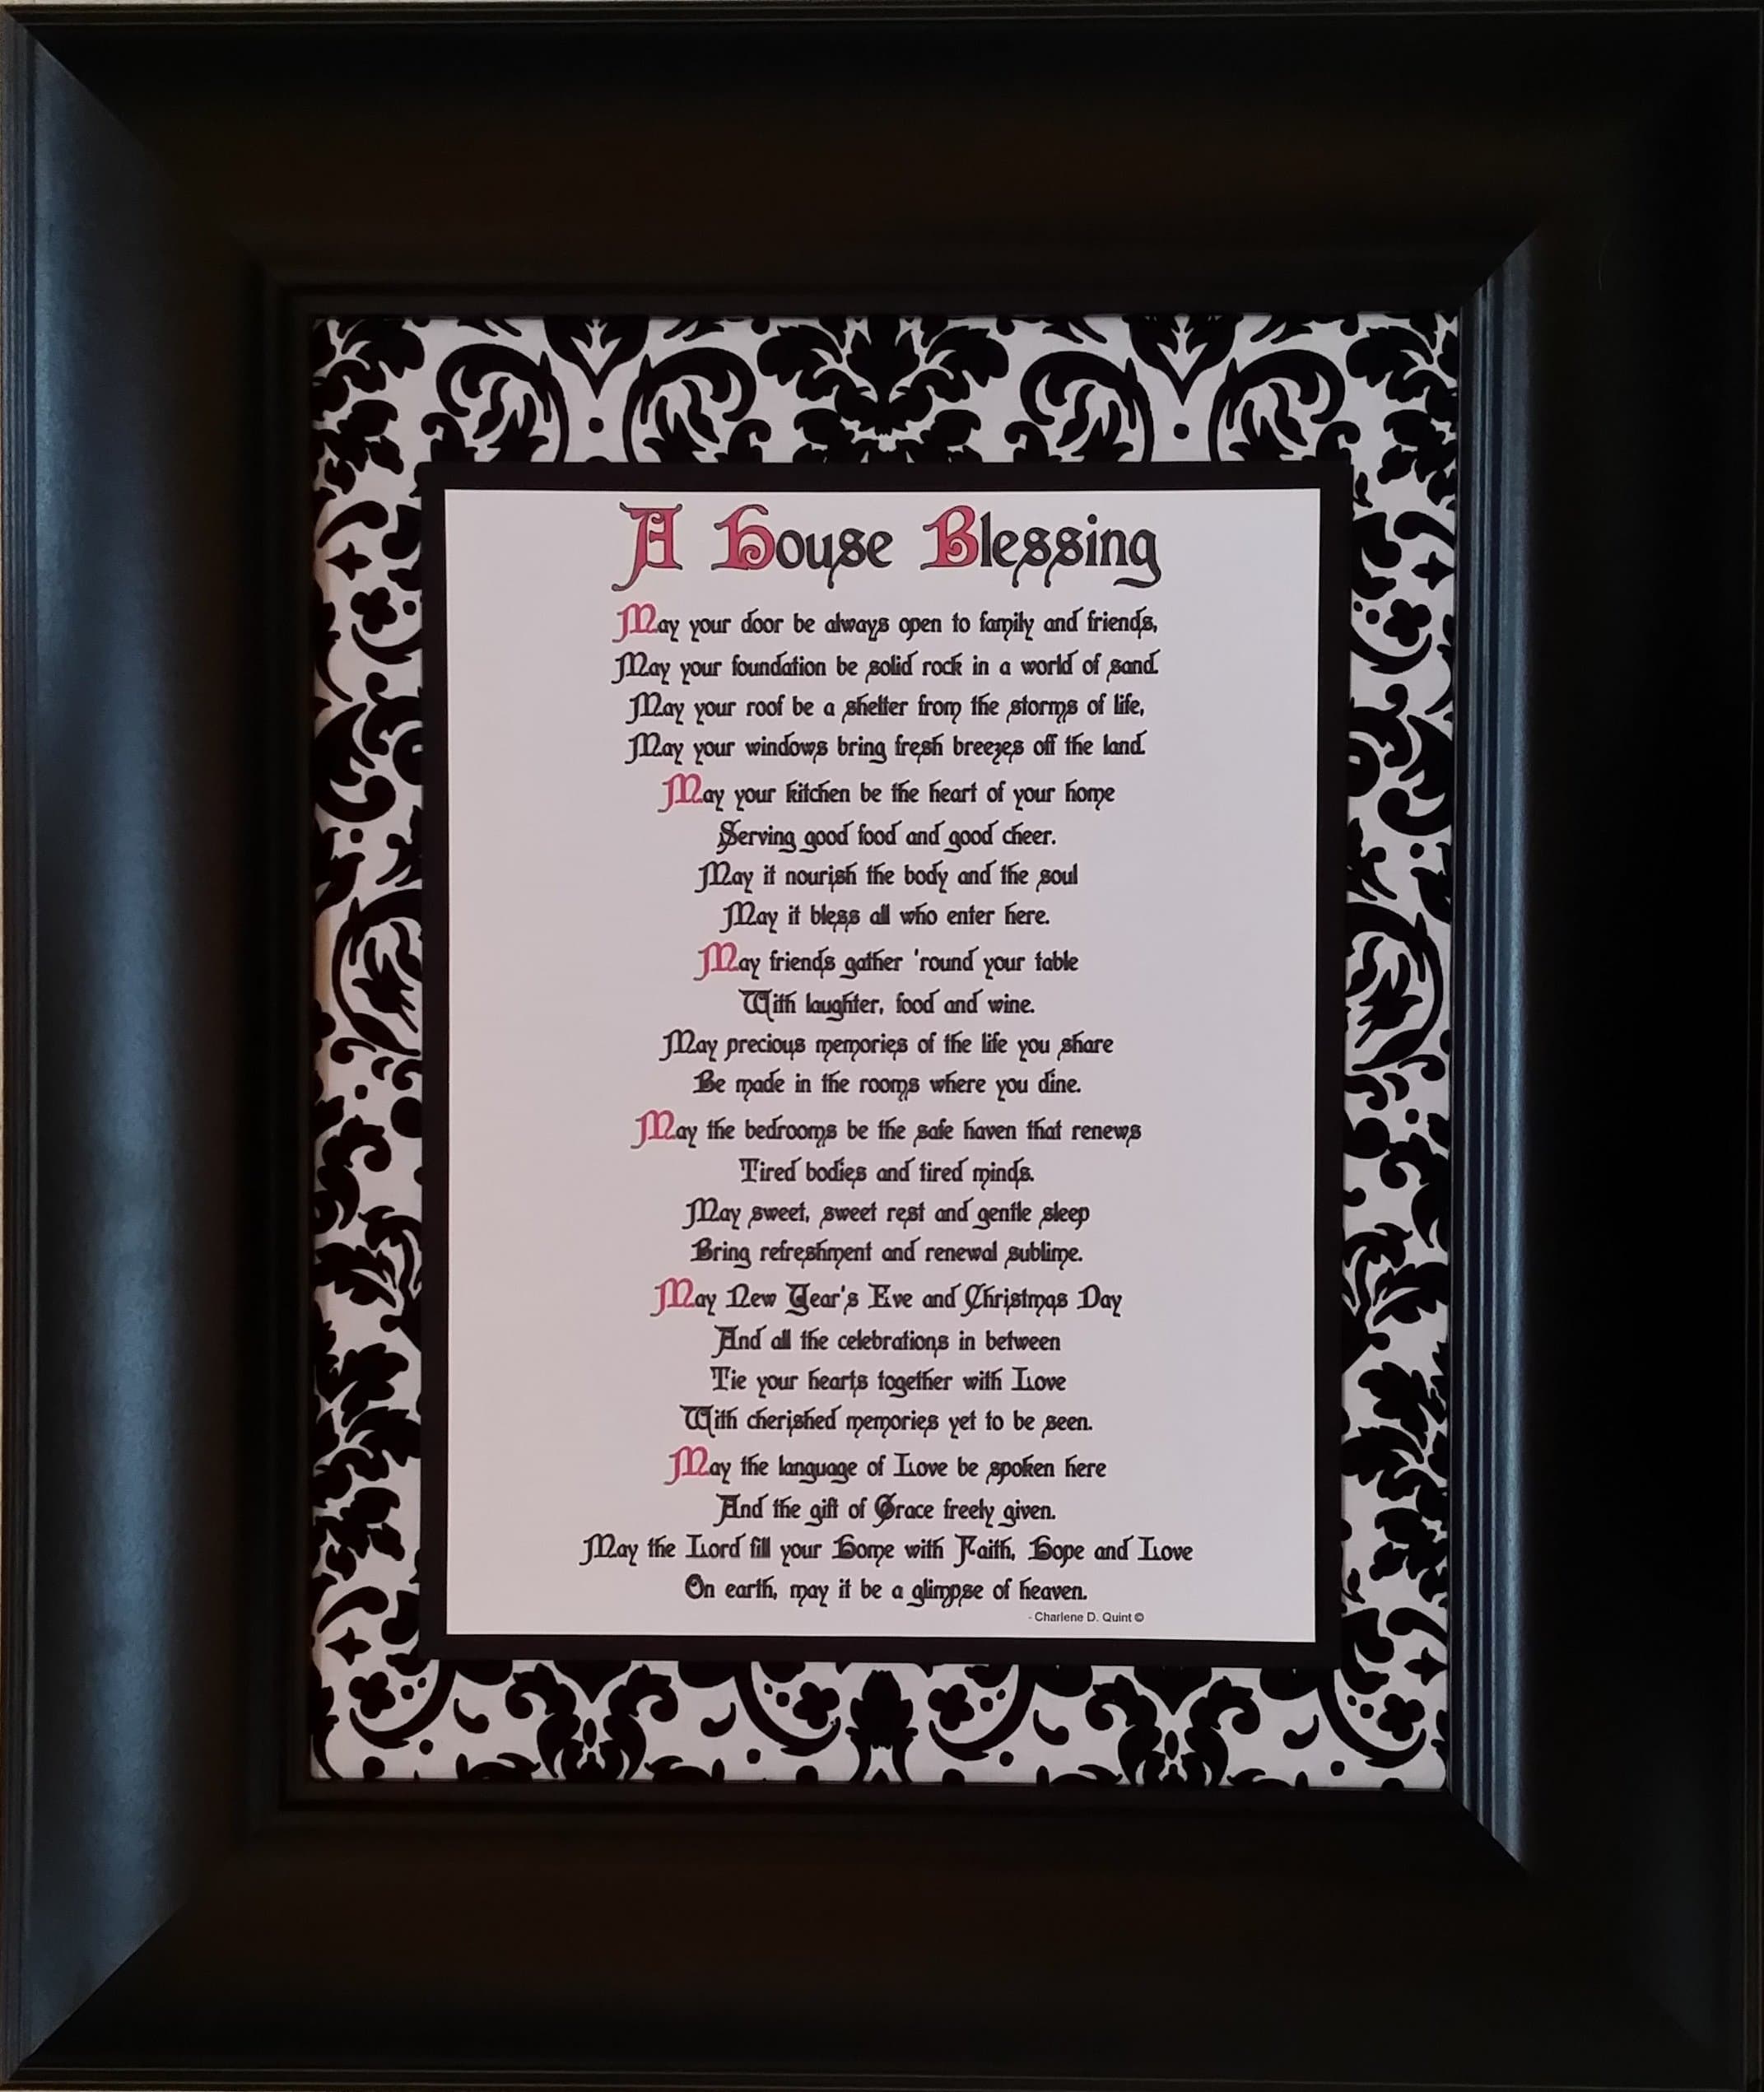 A House Blessing
May your door be always open to family and friends,
May your foundation be solid rock in a world of sand.
May your roof be a shelter from the storms of life,
May your windows bring fresh breezes off the land.
May your kitchen be the heart of your home
Serving good food and good cheer.
May it nourish the body and the soul
May it bless all who enter here.
May friends gather 'round your table
With laughter, food and wine.
May precious memories of the life you share
Be made in the rooms where you dine.
May the bedrooms be the safe haven that renews
Tired bodies and tired minds.
May sweet, sweet rest and gentle sleep
Bring refreshment and renewal sublime.
May New Year's Eve and Christmas Day
And all the celebrations in between
Tie your hearts together with Love
With cherished memories yet to be seen.
May the language of Love be spoken here
And the gift of Grace freely given.
May the Lord fill your Home with Faith, Hope and Love
On earth, may it be a glimpse of heaven.
- Charlene D. Quint ©